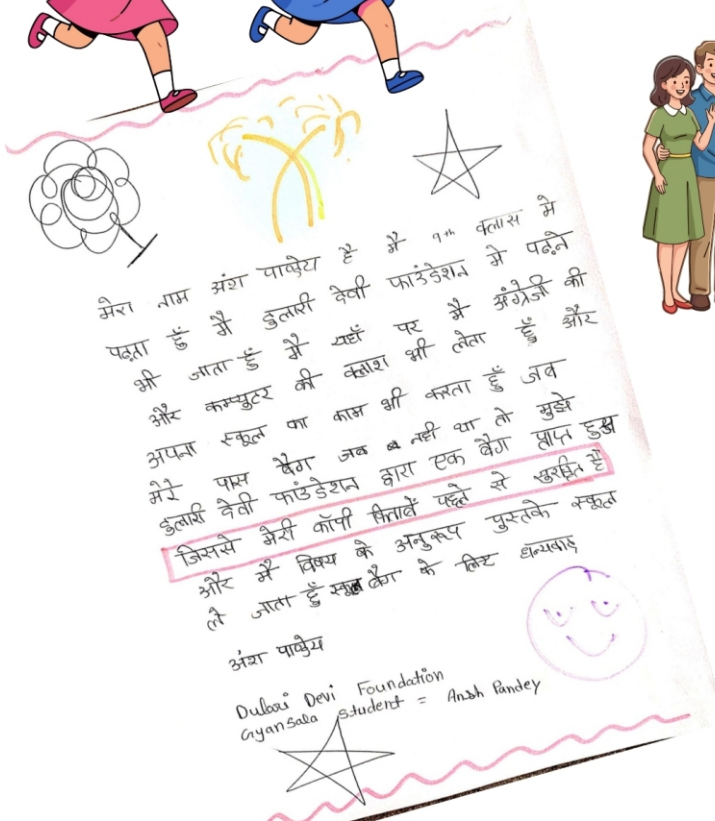 मेरा नाम अंश पाण्डेय है मै 9th क्लास मे
पढ़ता हुँ मै दुलारी देवी फाउंडेशन मे पढ़ने
भी जाता हुँ मै यहाँ पर मै अंग्रेजी की
और कम्प्युटर की क्लाश भी लेता हुँ और
अपना स्कूल का काम भी करता हुँ जब
मेरे पास बैग जब नही था तो मुझे
दुलारी देवी फाउंडेशन द्वारा एक बैग प्राप्त हुआ
जिससे मेरी कॉपी किताबें पहले से सुरक्षित हैं
और मैं विषय के अनुरूप पुस्तके स्कूल
ले जाता हुँ स्कूल बैग के लिए धन्यबाद
अंश पाण्डेय
Dulari Devi Foundation
Gyansala Student = Ansh Pandey